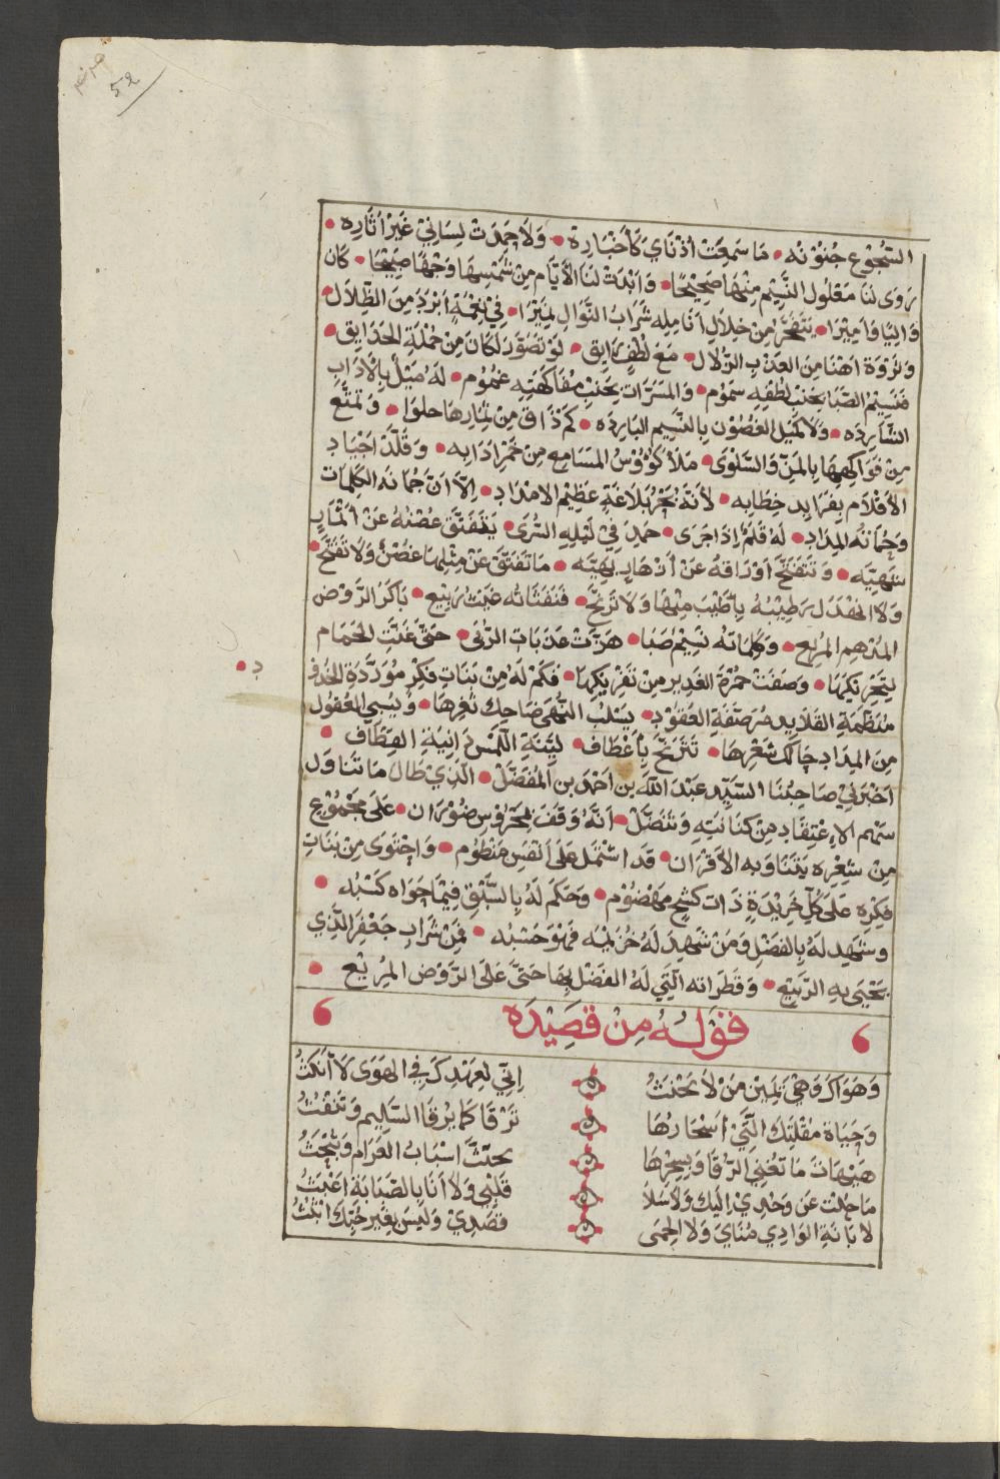 52
السجوع جنونه • ما سمعت أذناي كأخباره • ولا حمدت لساني غير آثاره •
روى لنا معلول النسيم منها صحيحا • وأبدت لنا الأيام من شمسها وجها صبيحا • كان
من خلال أنامله شراب النوال • في نعمة أبرد من الظلال •
وثروة أهنا من العذب الزلال • مع لطف رايق • لو تصور لكان من جملة الحدايق •
فنسيم الصبا بجنب لطفه سموم • والمسرات بجنب مفاكهته غموم • له ميل بالآداب
الشارده • ولا كميل الغصون بالنسيم البارده • كم ذاق من ثمارها حلوا • وتمتع
من فواكهها بالمن والسلوى • ملأ كؤوس المسامع من خمر آدابه • وقلد أجياد
الأقلام بفرايد خطابه • لأنه بحر بلاغة عظيم الامداد • إلا أن جمانه الكلمات
وجمانه المداد • له قلم إذا جرى • حمد في ليله السرى • يتفتق غصنه عن
شهيه • وتتفتح أوراقه عن أزهار بهيه • ما تفتق عن مثلها غصن ولا تفتح •
ولا رطيبه بأطيب منها ولا ترنح • فنفثاته غيث ربيع • باكر الروض
المريع • وكلماته نسيم صبا • هزت عذبات الربى • حتى غنت الحمام
وصفت حمرة الغدير من • فكم له من بنات فكر موردة الخدود
منظمة القلايد مرصفة العقود • يسلب النهى ضاحك ثغرها • ويسبي العقول
من المداد حالك شعرها • تترنح بأعطاف • لينة اللمس دانية القطاف •
أخبرني صاحبنا السيد عبد الله بن أحمد بن المفضل • الذي طال ما تناول
سهم الاعتقاد من كنانته وتنضل • أنه وقف بمحروس ضوران • على مجموع
من شعره يتنناوبه الأقران • قد اشتمل على أنفس منظوم • واحتوى من بنات
فكره على كل خريدة ذات كشح مهضوم • وحكم له بالسبق فيما حواه كسبه •
وشهد له بالفضل ومن شهد له خزيمه فهو حسبه • فمن شراب جعفر الذي
يحيى به الربيع • وقطراته التي لها الفضل حتى على الروض المريع •
فقوله من قصيده
وهواك وهي يمين من لا يحنث إني لعهدك في الهوى لا أنكث
وحياة مقلتك التي أسحارها ترقا كما يرقا السليم وتنفث
هيهات ما تغني الرقا وبسحرها يحتث أسباب الغرام ويبحث
ما حلت عن وجدي إليك ولا سلا قلبي ولا أنا بالصبابة أعبث
لا بانة الوادي مناي ولا الحمى قصدي وليس بغير حبك